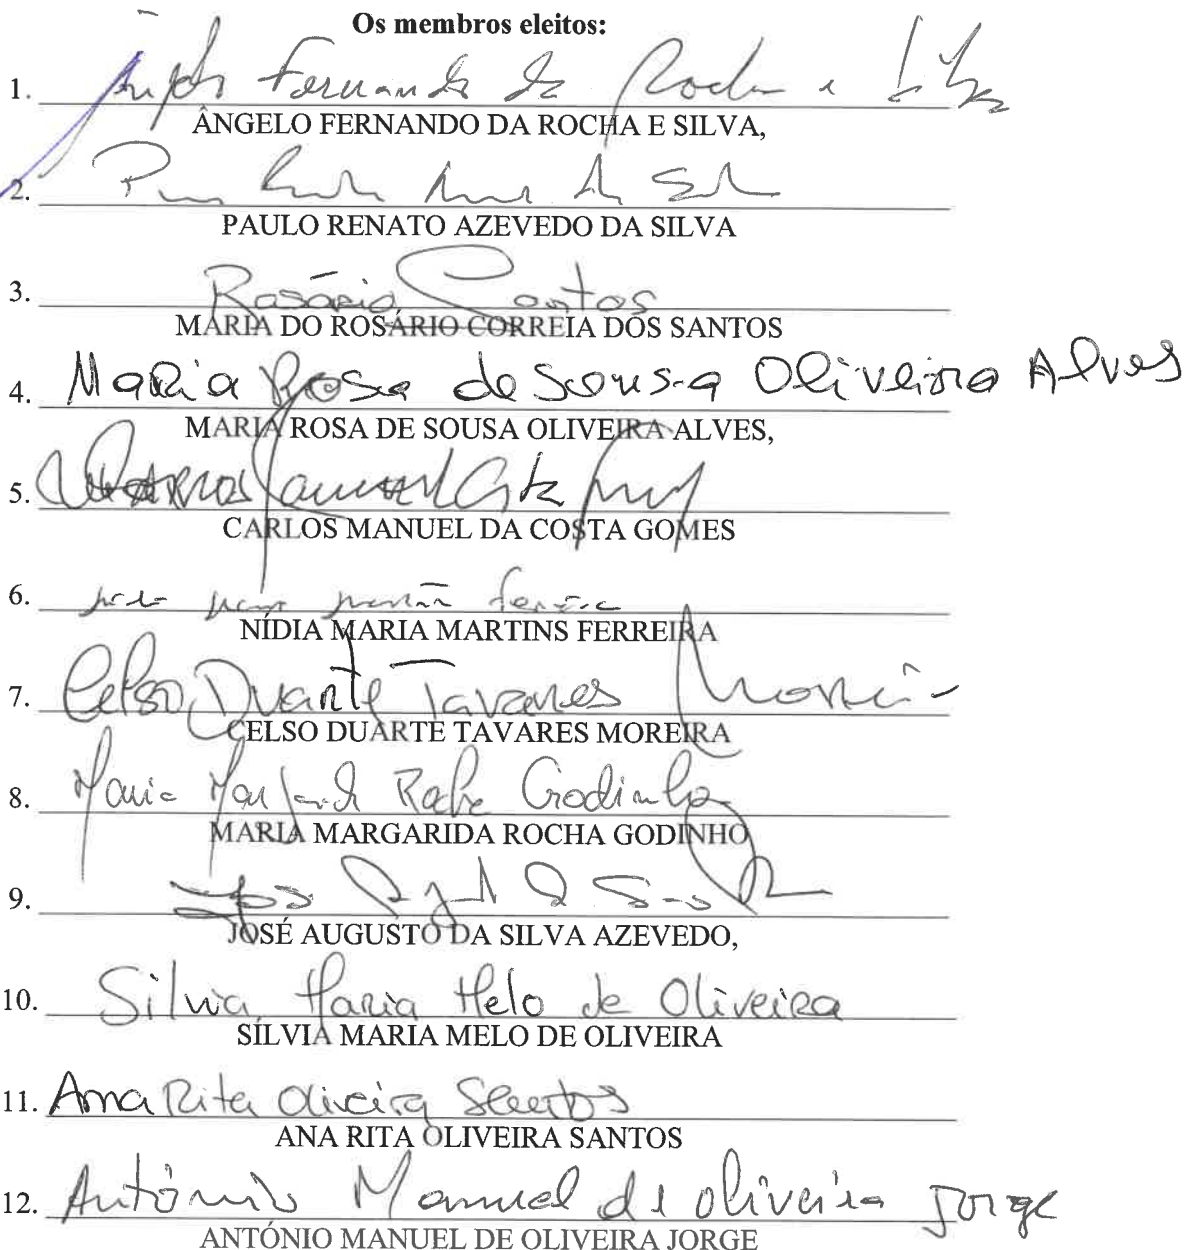 Os membros eleitos:
1. Ângelo Fernando da Rocha e Silva
ÂNGELO FERNANDO DA ROCHA E SILVA,
2.
PAULO RENATO AZEVEDO DA SILVA
3. Rosário Santos
MARIA DO ROSÁRIO CORREIA DOS SANTOS
4. Maria Rosa de Sousa Oliveira Alves
MARIA ROSA DE SOUSA OLIVEIRA ALVES,
5. Carlos Manuel Costa
CARLOS MANUEL DA COSTA GOMES
6.
NÍDIA MARIA MARTINS FERREIRA
7. Celso Duarte Tavares Moreira
CELSO DUARTE TAVARES MOREIRA
8. Maria Margarida Rocha Godinho
MARIA MARGARIDA ROCHA GODINHO
9.
JOSÉ AUGUSTO DA SILVA AZEVEDO,
10. Silvia Maria Melo de Oliveira
SÍLVIA MARIA MELO DE OLIVEIRA
11. Ana Rita Oliveira Santos
ANA RITA OLIVEIRA SANTOS
12. António Manuel de Oliveira Jorge
ANTÓNIO MANUEL DE OLIVEIRA JORGE